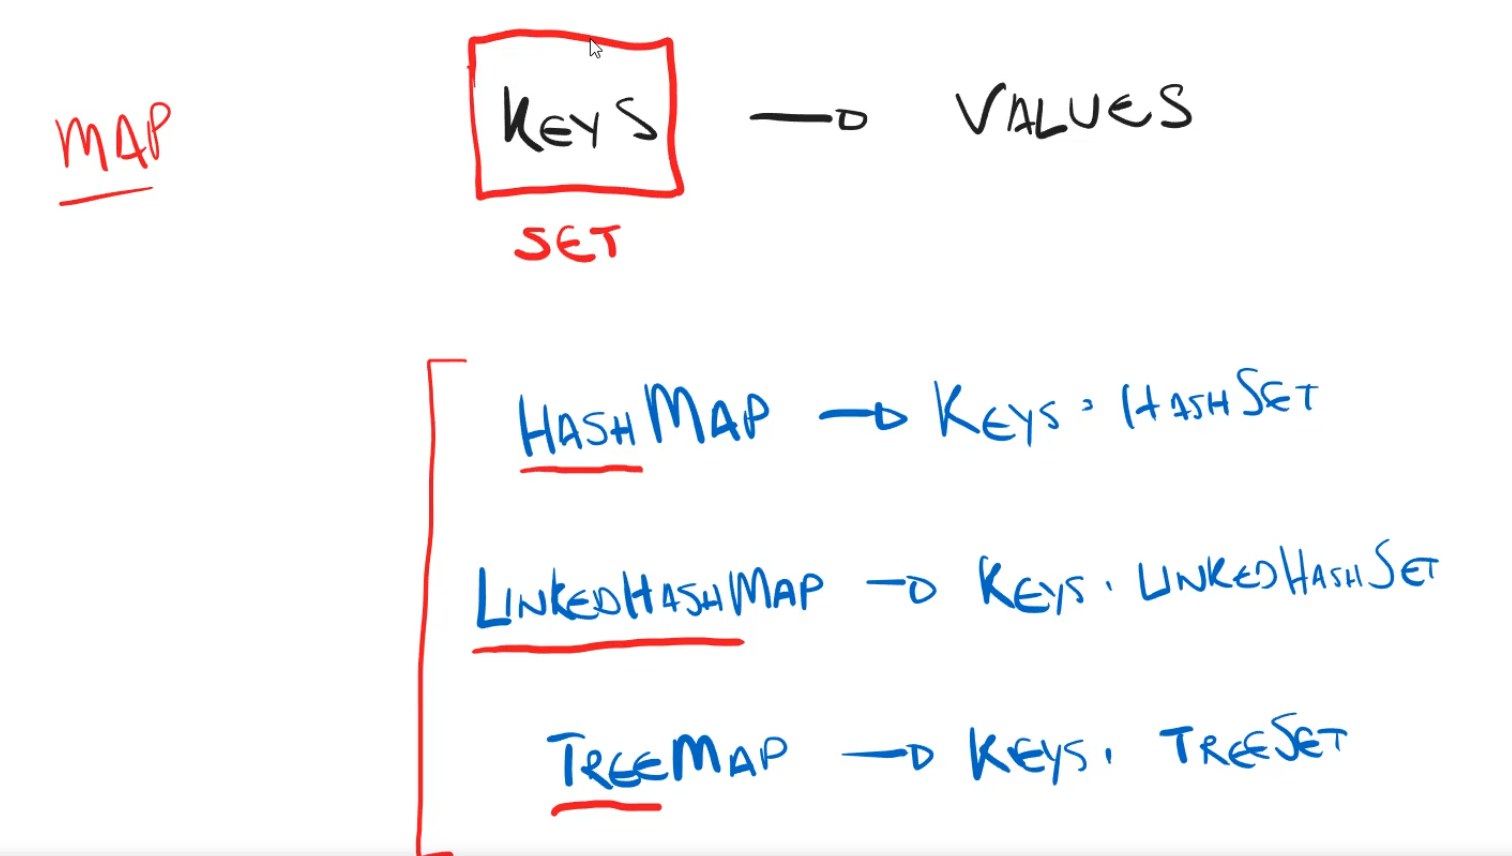 MAP
KEYS → VALUES
SET
HASHMAP → KEYS: HASHSET
LINKEDHASHMAP → KEYS: LINKEDHASHSET
TREEMAP → KEYS: TREESET